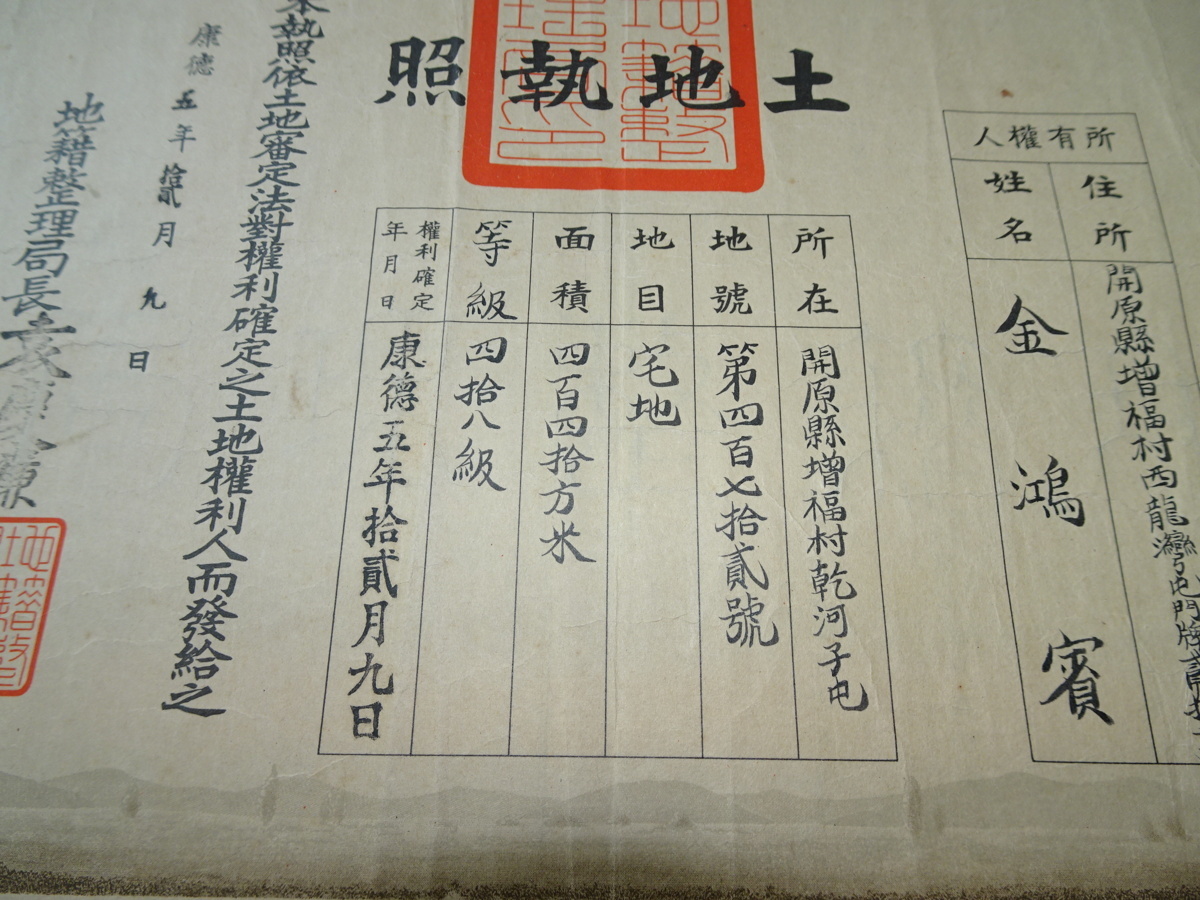 土地執照
所有權人
住所
開原縣增福村西龍灣屯門牌貳拾
姓名
金鴻賓
所在
開原縣增福村乾河子屯
地號
第四百七拾貳號
地目
宅地
面積
四百四拾方米
等級
四拾八級
權利確定年月日
康德五年拾貳月九日
本執照依土地審定法對權利確定之土地權利人而發給之
康德五年拾貳月九日
地籍整理局長